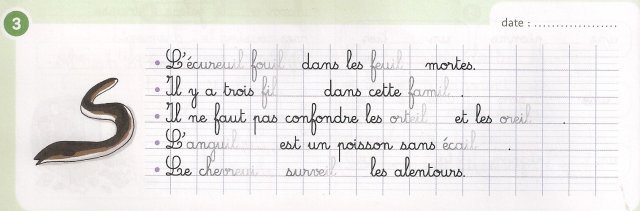 3
date : ....................
• L'écureuil fouil dans les feuil mortes.
• Il y a trois fil dans cette famil .
• Il ne faut pas confondre les orteil et les oreil .
• L'anguil est un poisson sans écail .
• Le chevreui surveil les alentours.